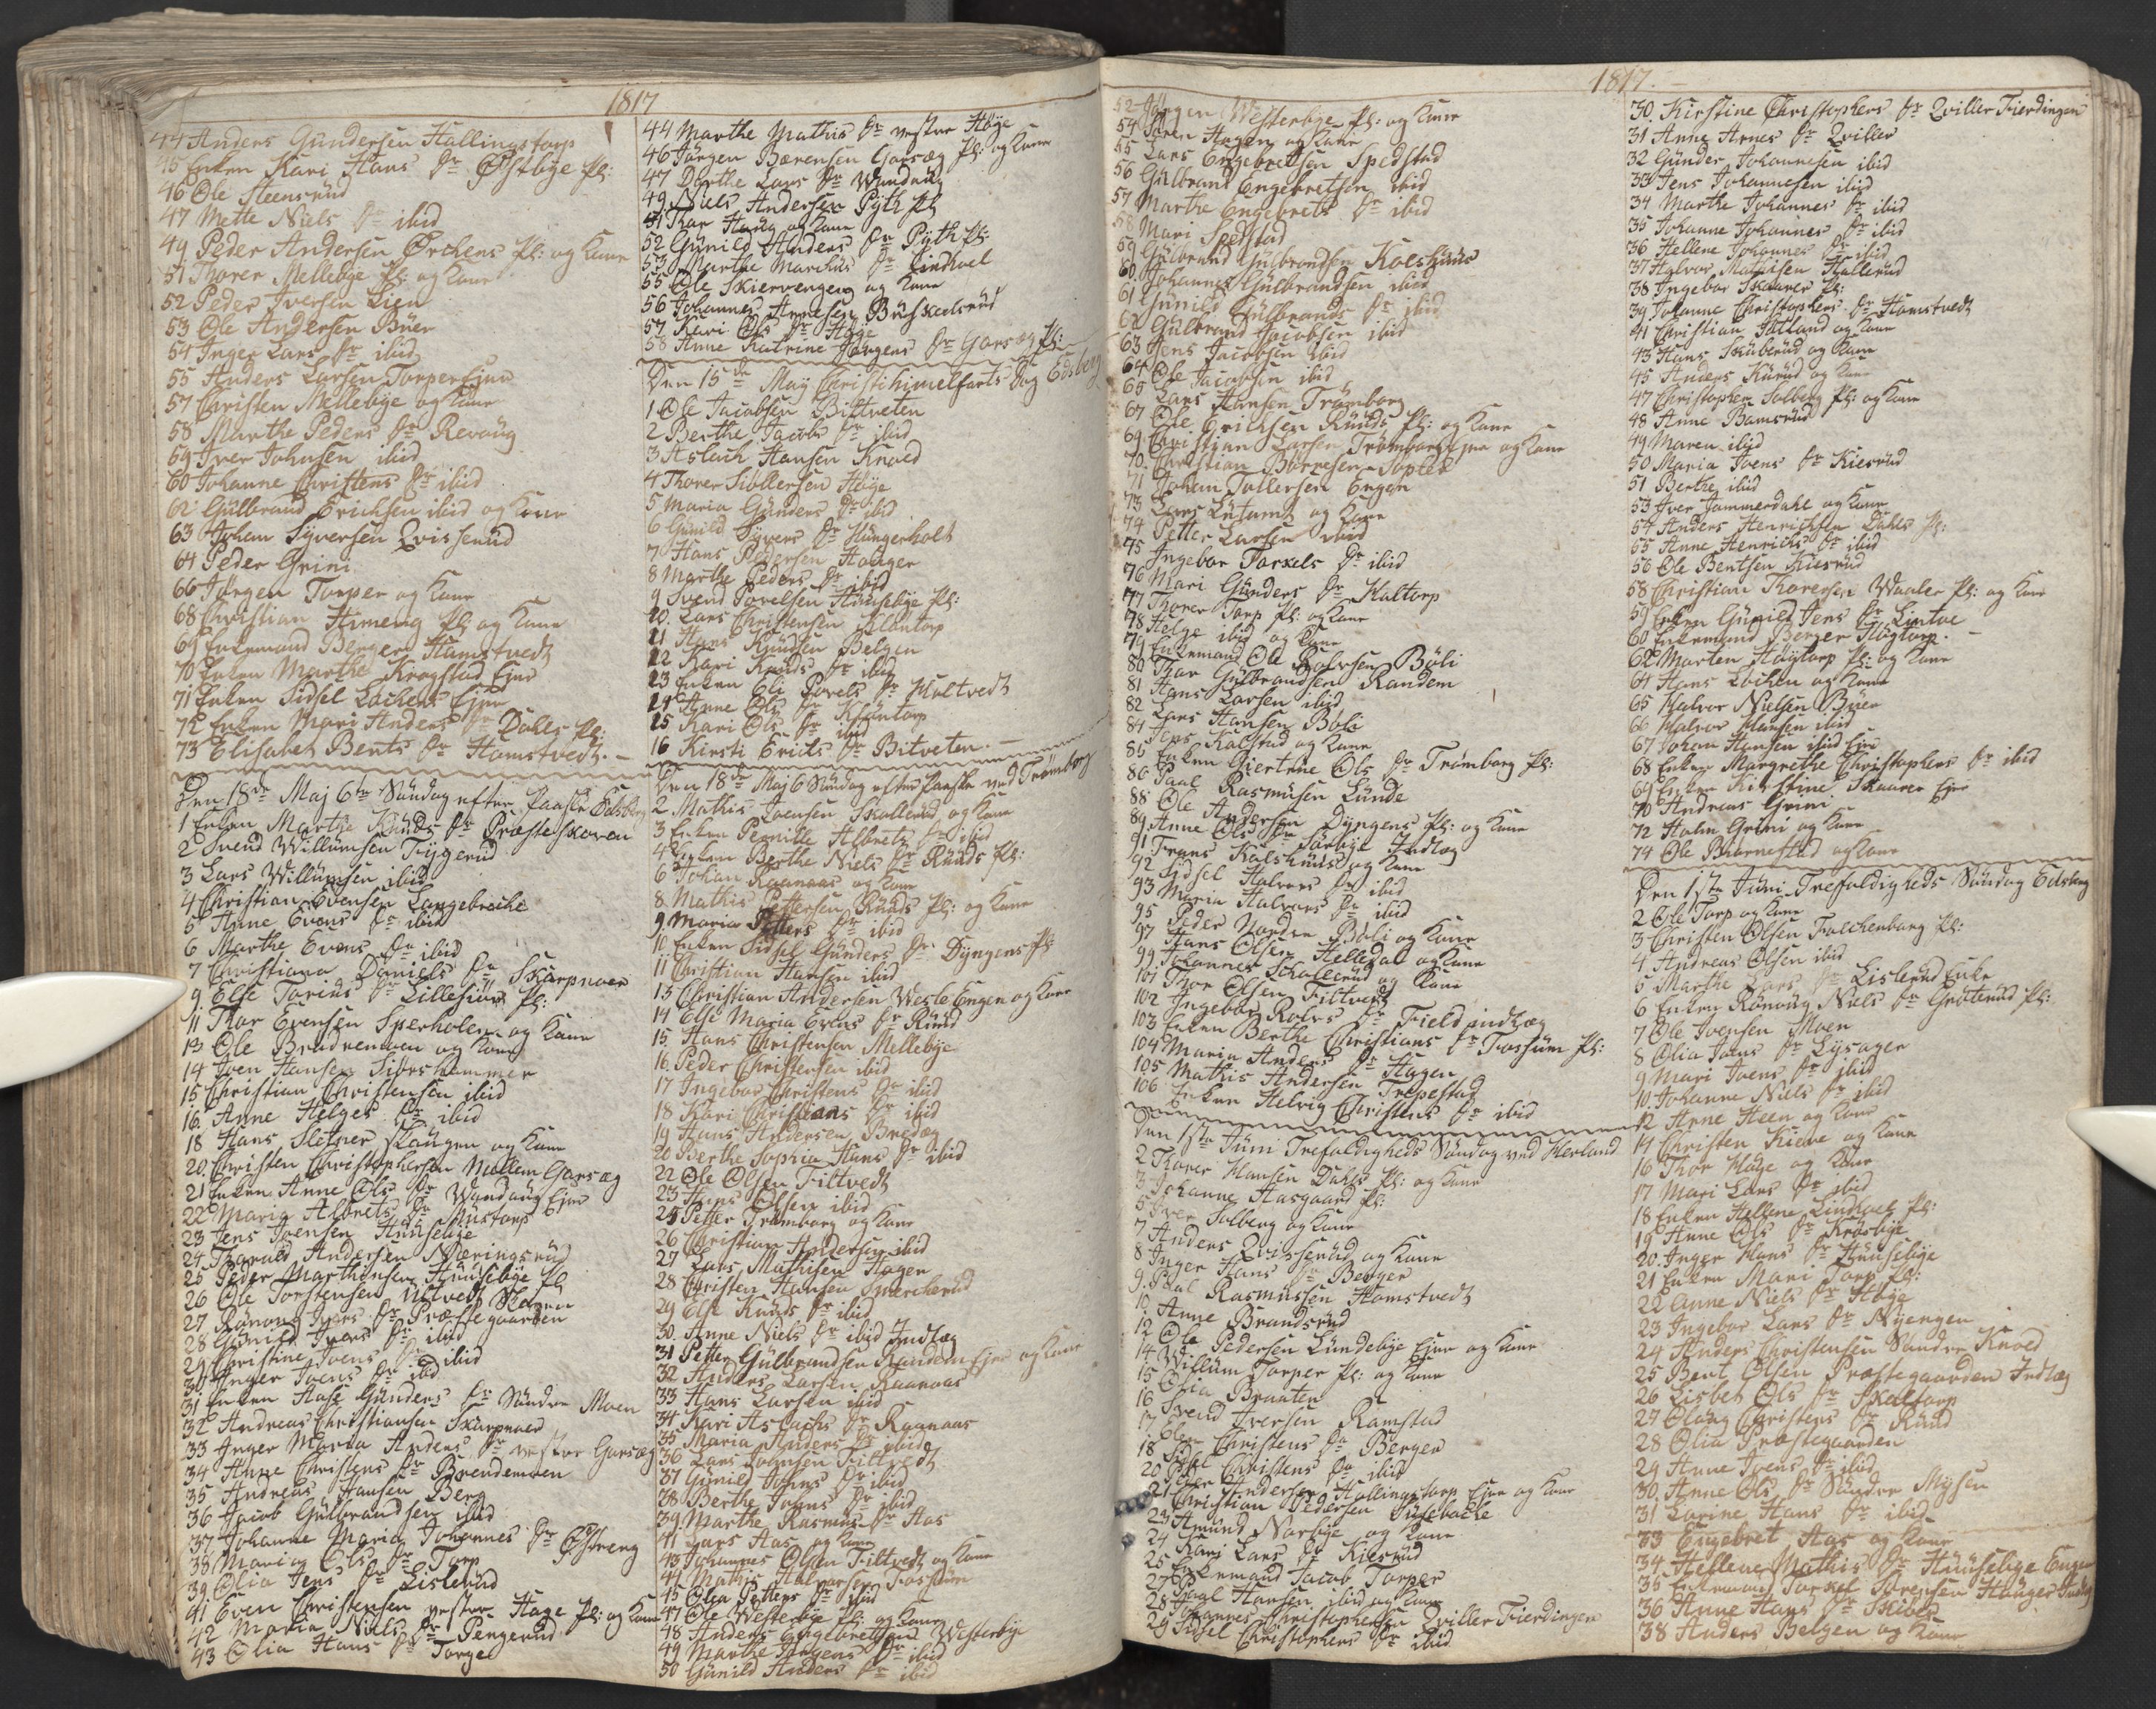 1817
44 Anders Gundersen Hallingstorp
45 Enken Kari Hans Dr Østbye Pl:
46 Ole Steensrud
47 Mette Niels Dr ibid
49 Peder Andersen Ørchens Pl: og Kone
51 Thorer Mellebye Pl: og Kone
52 Peder Iversen Lien
53 Ole Andersen Buer
54 Inger Lars Dr ibid
55 Anders Larsen Torper Ejer
57 Christen Mellebye og Kone
58 Marthe Peders Dr Revaug
59 Iver Johnsen ibid
60 Johanne Christens Dr ibid
62 Gulbrand Erichsen ibid og Kone
63 Johan Syversen Qvisserud
64 Peder Grini
66 Jørgen Torper og Kone
68 Christian Himeng Pl: og Kone
69 Enkemand Berger Hamstvedt
70 Enken Marthe Krogstad Ejer
71 Enken Sidsel Lochens Ejer
72 Enken Mari Anders Dr Dahls Pl:
73 Elisabet Bents Dr Hamstvedt.
Den 18de Maj 6te Sundag efter Paaske Edsberg
1 Enken Marthe Knuds Dr Præsteskoven
2 Svend Willumsen Tygerud
3 Lars Willumsen ibid
4 Christian Evensen Langebreche
5 Anne Evens Dr ibid
6 Marthe Evens Dr ibid
7 Christiana Daniels Dr Skarpnoer
9 Else Torius Dr Lillesiør Pl:
11 Thor Evensen Sperholen og Kone
13 Ole Brendemoen og Kone
14 Iven Hansen Sibershammer
15 Christian Christensen ibid
16 Anne Helges Dr ibid
18 Hans Sletner og Kone
20 Christen Christophersen Mellem Garsæg
21 Enken Anne Ols Dr Wandaug Ejer
22 Maria Albrets Dr
23 Jens Ivensen Huuselbye
24 Andersen Næringsrud
25 Peder Marthinsen Huuselbye Pl
26 Ole Torstensen
27 Rønnoug Ivers Dr Præstegaarden
28 Gunild Ivers Dr ibid
29 Christine Ivens Dr ibid
30 Inger Ivens Dr ibid
31 Enken Aase Gunders Dr Søndre Moen
32 Andreas Christiansen Skarpnoer
33 Inger Maria Anders Dr vestre Garsæg
34 Anne Christens Dr Brendemoen
35 Andreas Hansen Berg
36 Jacob Gulbrandsen ibid
37 Johanne Maria Johannes Dr Østreng
38 Maria Ols Dr Torp
39 Olia Jens Dr Lislerud
41 Even Christensen vestre Hage Pl: og Kone
42 Maria Niels Dr Pengerud
43 Olia Hans Dr Torget
44 Marthe Mathis Dr vestre Habye
46 Jørgen Børensen Garsæg Pl: og Kone
47 Dorthe Lars Dr Wandaug
49 Niels Andersen Pyth Pl
51 Thor Haug og Kone
52 Gunild Anders Dr Pyth Pl:
53 Marthe Marchus Dr Lindhoel
55 Ole Skiervengen og Kone
56 Johannes Arnesen Buskeslerud
57 Kari Ols Dr Habye
58 Anne Katrine Jørgens Dr Garsæg Pl:
Den 15de Maj Christi himelfarts Dag Edsberg
1 Ole Jacobsen Bitveten
2 Berthe Jacobs Dr ibid
3 Aslach Hansen Knoed
4 Thorer Siøllersen Habye
5 Maria Gunders Dr ibid
6 Gunild Syvers Dr Hungerholt
7 Hans Pedersen Hauger
8 Marthe Peders Dr ibid
9 Svend Povelsen Huuselbye Pl:
10 Lars Christensen Kluntorp
11 Hans Knudsen Belgen
12 Kari Knuds Dr ibid
13 Enken Eli Povels Dr Hultvedt
14 Anne Ols Dr Kluntorp
15 Kari Ols Dr ibid
16 Kirsti Erichs Dr Bitveten.
Den 18de Maj 6 Sundag efter Paaske ved Trømborg
2 Mathis Ivensen Skallerud og Kone
3 Enken Pernille Albrets Dr ibid
4 Enken Berthe Niels Dr Ruuds Pl:
6 Johan Raanaas og Kone
8 Mathis Pettersen Ruuds Pl: og Kone
9 Maria Petters Dr ibid
10 Enken Sidsel Gunders Dr Dyngens Pl:
11 Christian Hansen ibid
13 Christian Andersen Weste Engen og Kone
14 Else Maria Evens Dr Ruud
15 Hans Christensen Mellebye
16 Peder Christensen ibid
17 Ingebor Christens Dr ibid
18 Kari Christians Dr ibid
19 Hans Andersen Bredeg
20 Berthe Sophia Hans Dr ibid
22 Ole Olsen Filtvedt
23 Hans Olsen ibid
25 Petter Trømborg og Kone
26 Christian Andersen ibid
27 Lars Mathisen Hagen
28 Christen Hansen Smercherud
29 Else Knuds Dr ibid
30 Anne Niels Dr ibid Indlæg
31 Petter Gulbrandsen Randem Ejer og Kone
32 Anders Larsen Raanaas
33 Hans Larsen ibid
34 Kari Aslachs Dr Raanaas
35 Maria Anders Dr ibid
36 Lars Johnsen Filtvedt
37 Gunild Johns Dr ibid
38 Berthe Johns Dr ibid
39 Marthe Rasmus Dr Aas
41 Lars Aas og Kone
43 Johannes Olsen Filtvedt og Kone
44 Mathis Halvorsen Fossum
45 Olea Petters Dr ibid
47 Ole Westerbye Pl: og Kone
48 Anders Engebretsen Westerbye
49 Marthe Jørgens Dr ibid
50 Gunild Anders Dr ibid
1817.
52 Jørgen Westerbye Pl: og Kone
54 Søren Hagen og Kone
55 Lars Engebretsen Spedstad
56 Gulbrand Engebretsen ibid
57 Marthe Engebrets Dr ibid
58 Mari Spedstad
59 Gulbrand Gulbrandsen Kolshuus
60 Johannes Gulbrandsen ibid
61 Gunild Gulbrands Dr ibid
62 Gulbrand Jacobsen ibid
63 Jens Jacobsen ibid
64 Ole Jacobsen ibid
65 Lars Hansen Trømborg
67 Ole Erichsen Ruuds Pl: og Kone
69 Christian Larsen Trømborg Ejer og Kone
70 Christian Børresen
71 Johan Tollersen Engen
73 Lars og Kone
74 Petter Larsen ibid
75 Ingebor Torkels Dr ibid
76 Mari Gunders Dr Kaltorp
77 Thorer Torp Pl: og Kone
78 Helge ibid og Kone
79 Enkemand Ole Rolvsen Bøli
80 Thor Gulbrandsen Randem
81 Hans Larsen ibid
82 Lars Hansen Bøli
84 Jens Kalstad og Kone
85 Enken Giertrue Ols Dr Trømborg Pl:
86 Paal Rasmusen Lunde
88 Ole Andersen Dyngens Pl: og Kone
89 Anne Ols Dr Sørbye Indlæg
91 Frans Kalshuus og Kone
92 Sidsel Halvors Dr ibid
93 Maria Halvors Dr ibid
95 Peder Nordre Bøli og Kone
97 Hans Olsen Helledal og Kone
99 Johannes Schallerud og Kone
101 Thor Olsen Filtvedt
102 Ingebor Rolvs Dr Field indlæg
103 Enken Berthe Christians Dr Fossum Pl:
104 Maria Anders Dr Hagen
105 Mathis Andersen Trepestad
106 Enken Helvig Christens Dr ibid
Den 1ste Juni Trefoldigheds Søndag ved Herland
2 Thorer Hansen Dahls Pl: og Kone
3 Johanne Aasgaard Pl:
5 Iver Solberg og Kone
7 Anders Qvisserud og Kone
8 Inger Hans Dr Berger
9 Paal Rasmussen Hamstvedt
10 Anne Brandsrud
12 Ole Pedersen Lundebye Ejer og Kone
14 Willum Torper Pl: og Kone
15 Olia Braaten
16 Svend Iversen Ramstad
17 Elen Christens Dr Berger
18 Sidsel Christens Dr ibid
20 Peder Andersen Hallingstorp Ejer og Kone
21 Christian Pedersen Susebache
23 Amund Narbye og Kone
24 Kari Lars Dr Kiesrud
25 Enkemand Jacob Torper
27 Paal Hansen ibid og Kone
28 Johannes Christophersen Qviller Fierdingen
29 Sidsel Christophers Dr ibid
30. Kirstine Christophers Dr Qviller Fierdingen
31 Anne Arnes Dr Qviller
32 Gunder Johannesen ibid
33 Jens Johannesen ibid
34 Marthe Johannes Dr ibid
35 Johanne Johannes Dr ibid
36 Hellene Johannes Dr ibid
37 Halvor Mathisen Hallerud
38 Ingebor Skaarer Pl:
39 Johanne Christophers Dr Hamstvedt
41 Christian Jelland og Kone
43 Hans Skuberud og Kone
45 Anders Kurud og Kone
47 Christopher Solberg Pl: og Kone
48 Anne Bamsrud
49 Maren ibid
50 Maria Ivens Dr Kiesrud
51 Berthe ibid
53 Iver Jammerdahl og Kone
54 Anders Henrichsen Dahls Pl:
55 Anne Henrichs Dr ibid
56 Ole Bentsen Kiesrud
58 Christian Thoresen Waaler Pl: og Kone
59 Enken Gunild Jens Dr Lintve
60 Enkemand Berger Høytorp.
62 Morten Høytorp Pl: og Kone
64 Hans Lochen og Kone
65 Halvor Nielsen Buer
66 Halvor Hansen ibid
67 Johan Hansen ibid Ejer
68 Enken Margrethe Christophers Dr ibid
69 Enken Kirstine Skaarer Ejer
70 Andreas Grini
72 Holm Grini og Kone
74 Ole Biørnestad og Kone
Den 1ste Juni Trefoldigheds Søndag Edsberg
2 Ole Torp og Kone
3 Christen Olsen Falchenborg Pl:
4 Andreas Olsen ibid
5 Marthe Lars Dr Lislerud Enke
6 Enken Rønnoug Niels Dr Grøterud Pl:
7 Ole Ivensen Moen
8 Olia Ivens Dr Lysager
9 Mari Ivens Dr ibid
10 Johanne Niels Dr ibid
12 Anne Heen og Kone
14 Christen Kieve og Kone
16 Thor Hage og Kone
17 Mari Lars Dr ibid
18 Enken Hellene Lindhoel Pl:
19 Anne Ols Dr Krosbye
20 Inger Hans Dr Huuselbye
21 Enken Mari Torp Pl:
22 Anne Niels Dr Habye
23 Ingebor Lars Dr Nyengen
24 Anders Christensen Søndre Knoed
25 Bent Olsen Præstegaarden Indlæg
26 Lisbet Ols Dr Skaltorp
27 Olaug Christens Dr Ruud
28 Olia Præstegaarden
29 Anne Ivens Dr ibid
30 Anne Ols Dr Søndre Mysen
31 Larine Hans Dr ibid
33 Engebret Aas og Kone
34 Hellene Mathis Dr Huuselbye Engen
35 Enkemand Torkel Sørensen Hauger
36 Anne Hans Dr Skibes
38 Anders Belgen og Kone